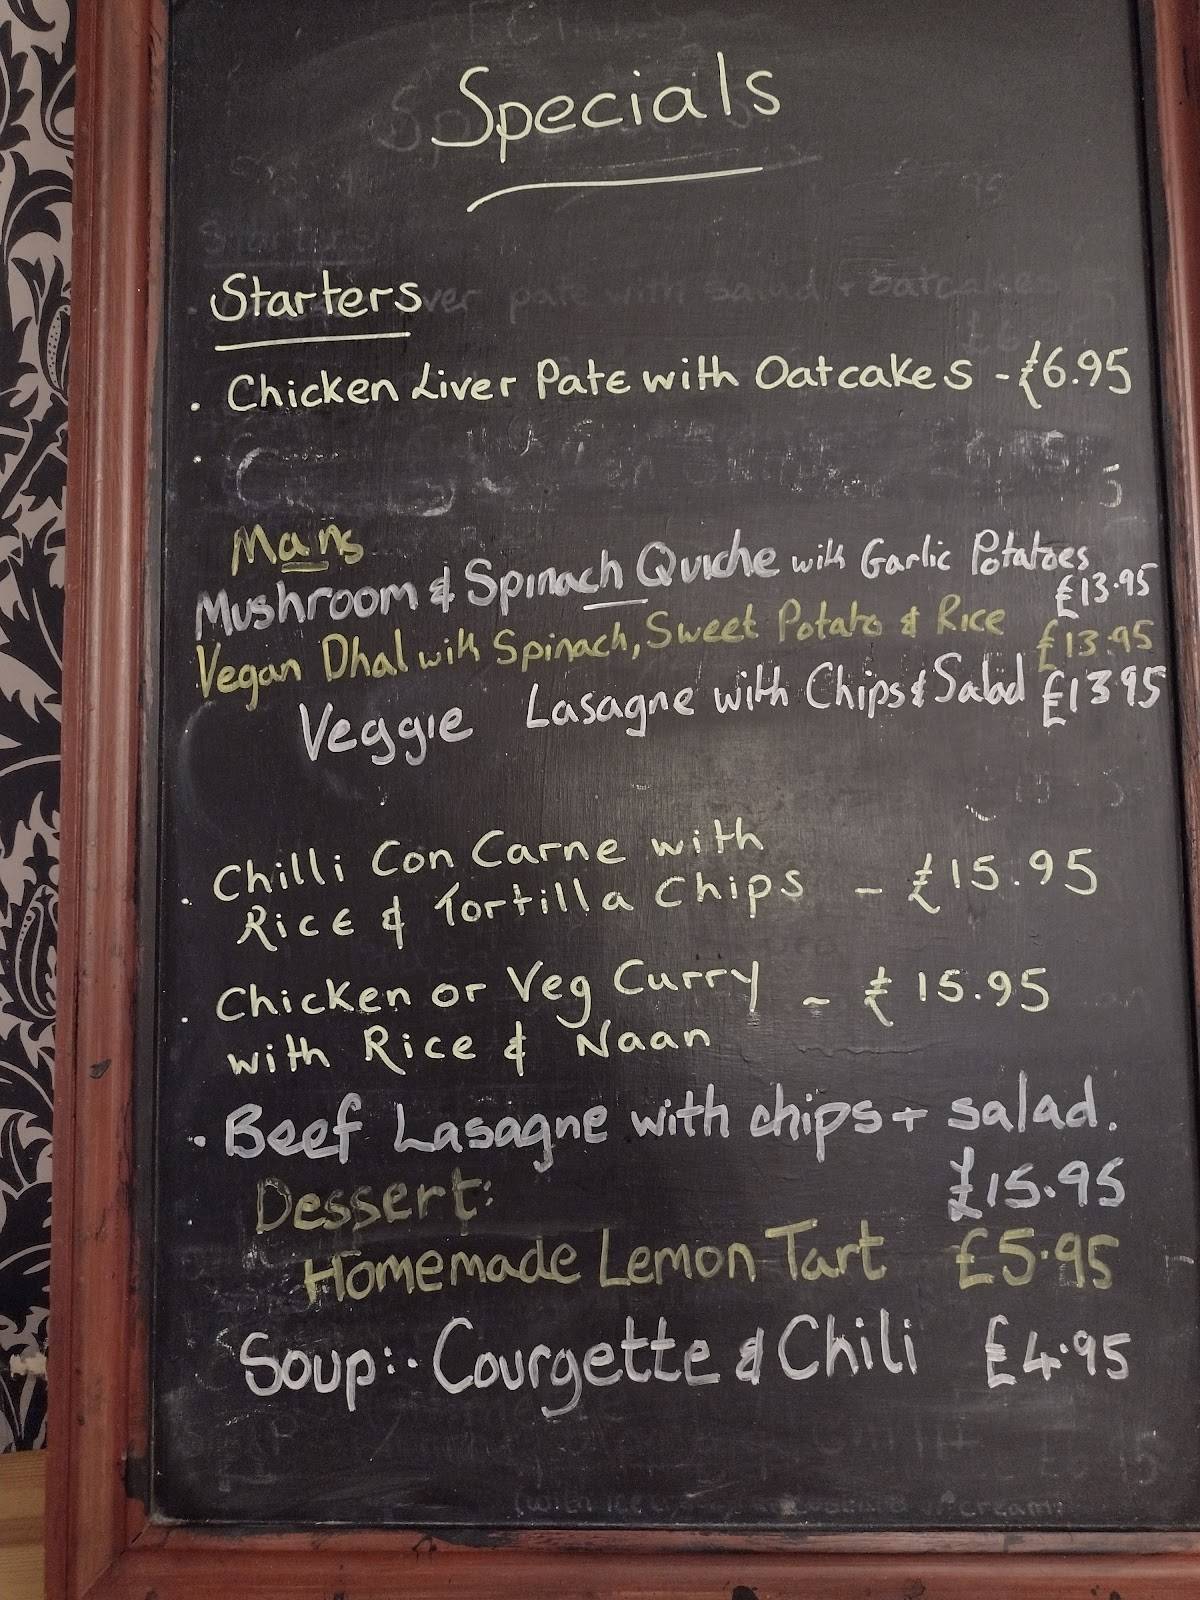 Specials
Starters
. Chicken Liver Pate with Oatcakes - £6.95
Mans
Mushroom & Spinach Quiche with Garlic Potatoes
£13.95
Vegan Dhal with Spinach, Sweet Potato & Rice £13.95
Veggie Lasagne with Chips & Salad £1395
. Chilli Con Carne with
Rice & Tortilla Chips - £15.95
. Chicken or Veg Curry ~ £15.95
with Rice & Naan
. Beef Lasagne with chips + salad.
£15.95
Dessert:
Homemade Lemon Tart £5.95
Soup:. Courgette & Chili £4.95